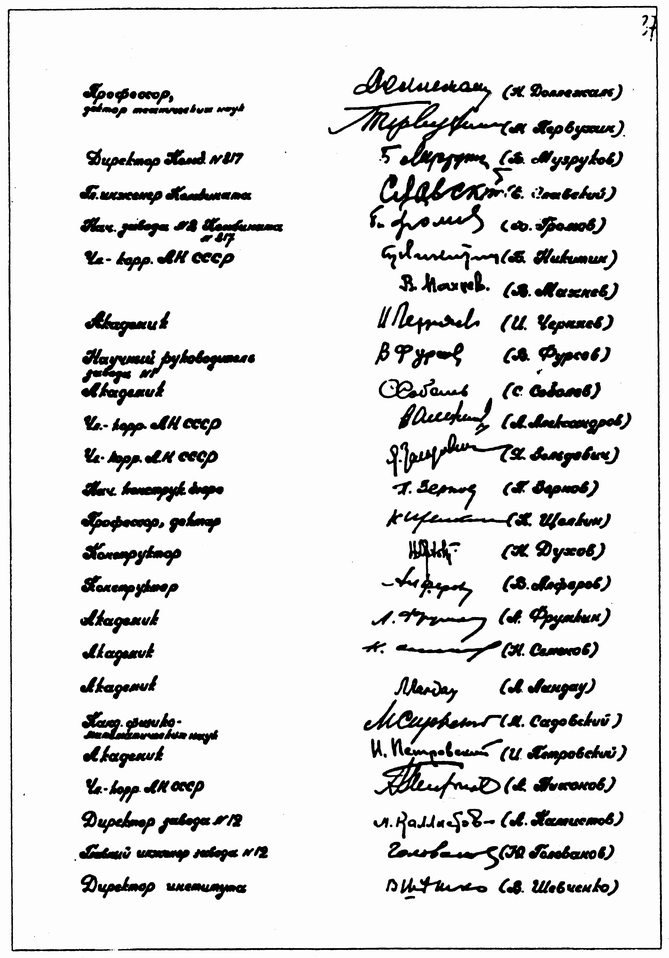 37
Профессор, (Н. Доллежаль)
доктор технических наук
Первухин (М. Первухин)
Директор Комб. №817 (Б. Музруков)
Гл. инженер Комбината Славский (Е. Славский)
Нач. завода №2 Комбината Громов (Ф. Громов)
№817
Чл.-корр. АН СССР (Б. Никитин)
В. Махнев. (В. Махнев)
Академик И Черняев (И. Черняев)
Научный руководитель В Фурсов (В. Фурсов)
завода №1
Академик С Соболев (С. Соболев)
Чл.-корр. АН СССР (А. Александров)
Чл.-корр. АН СССР Я. Зельдович (Я. Зельдович)
Нач. конструк. бюро П. Зернов (П. Зернов)
Профессор, доктор К Щелкин (К. Щелкин)
Конструктор (Н. Духов)
Конструктор Алферов (В. Алферов)
Академик А. Фрумкин (А. Фрумкин)
Академик (Н. Семенов)
Академик Л Ландау (Л. Ландау)
Канд. физико- М Садовский (М. Садовский)
математических наук
Академик И. Петровский (И. Петровский)
Чл.-корр. АН СССР (А. Тихонов)
Директор завода №12 А. Каллистов (А. Каллистов)
Главный инженер завода №12 Голованов (Ю Голованов)
Директор института (В. Шевченко)